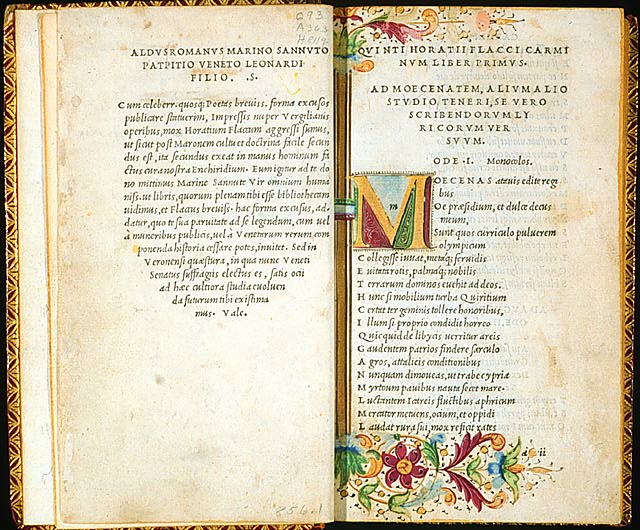 ALDVS ROMANVS MARINO SANNVTO
PATPITIO VENETO LEONARDI
FILIO. .S.
Cum celeberr. quosq; Poetas breuiss. forma excusos
publicare statuerim, Impressis nuper Vergilianis
operibus, mox Horatium Flaccum aggressi sumus,
ut sicut post Maronem cultu et doctrina facile secun
dus est, ita secundus exeat in manus hominum
ctus cura nostra Enchiridion. Eum igitur ad te do
no mittimus Marine Sannute Vir omnium huma
niss. ut libris, quorum plenam tibi esse bibliothecam
uidimus, et Flaccus breuiss. hac forma excusus, ad-
datur, quo te sua paruitate ad se legendum, cum uel
à muneribus publicis, uel à Venetarum rerum com
ponenda historia cessare potes, inuitet. Sed in
Veronensi quæstura, in qua nunc Veneti
Senatus suffragiis electus es, satis ocii
ad hæc cultiora studia euoluen
da futurum tibi existima
mus. Vale.
256.1
QVINTI HORATII FLACCI CARMI
NVM LIBER PRIMVS.
AD MOECENATEM, ALIVM ALIO
STVDIO TENERI, SE VERO
SCRIBENDORVM LY
RICORVM VER
SVVM.
ODE .I. Monocolos.
M
m
OECENAS atauis edite regi
bus
Oe præsidium, et dulce decus
meum,
Sunt quos curriculo puluerem
olympicum
Collegisse iuuat, metaq; feruidis
Euitata rotis, palmaq; nobilis
Terrarum dominos euehit ad deos.
Hunc si mobilium turba Quiritium
Certat tergeminis tollere honoribus,
Illum si proprio condidit horreo
Quicquid de libycis uerritur areis
Gaudentem patrios findere sarculo
Agros, attalicis conditionibus
Nunquam dimoueas, ut trabe cypria
Myrtoum pauidus nauta secet mare.
Luctantem Icareis fluctibus aphricum
Mercator metuens, ocium, et oppidi
Laudat rura sui, mox reficit rates
a ii